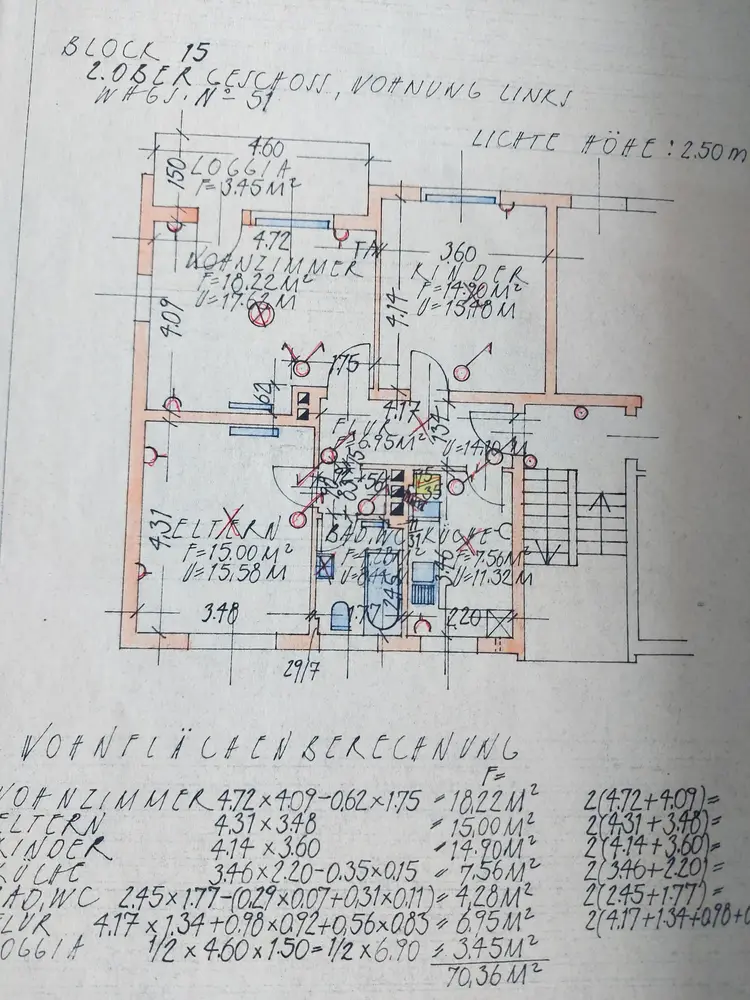 BLOCK 15
2.OBERGESCHOSS, WOHNUNG LINKS
WHGS. Nº 51
LICHTE HÖHE: 2.50 m
4.60
150
LOGGIA
F=3.45 M²
4.72
WOHNZIMMER
F=18.22 M²
U=17.62 M
4.09
3.60
KINDER
F=14.90 M²
U=15.48 M
4.14
1.75
62
4.17
FLUR
F=6.95 M²
134
U=14.10 M
56
ELTERN
F=15.00 M²
U=15.58 M
4.31
3.48
BAD, WC
F=4.28 M²
U=8.44 M
2.45
1.77
KÜCHE
F=7.56 M²
U=11.32 M
3.46
2.20
15
35
29/7
WOHNFLÄCHENBERECHNUNG
F=
WOHNZIMMER 4.72 x 4.09 - 0.62 x 1.75 = 18.22 M² 2(4.72+4.09)=
ELTERN 4.31 x 3.48 = 15.00 M² 2(4.31+3.48)=
KINDER 4.14 x 3.60 = 14.90 M² 2(4.14+3.60)=
KÜCHE 3.46 x 2.20 - 0.35 x 0.15 = 7.56 M² 2(3.46+2.20)=
BAD, WC 2.45 x 1.77 - (0.29 x 0.07 + 0.31 x 0.11) = 4,28 M² 2(2.45+1.77)=
FLUR 4.17 x 1.34 + 0.98 x 0.92 + 0,56 x 0.83 = 6.95 M² 2(4.17+1.34+0.98+0
LOGGIA 1/2 x 4.60 x 1.50 = 1/2 x 6.90 = 3.45 M²
70,36 M²